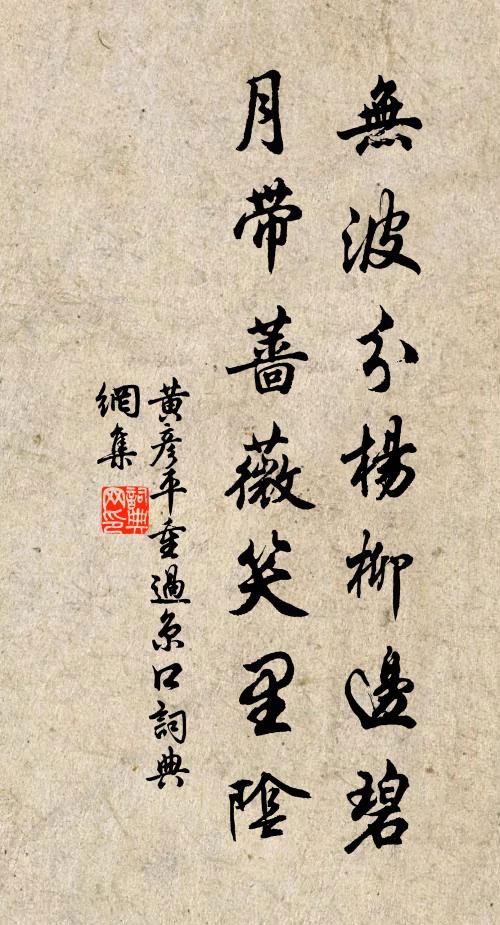 無波分楊柳邊碧
月帶薔薇笑里陰
黃彥平重過京口詞典
網集
詞典
网印